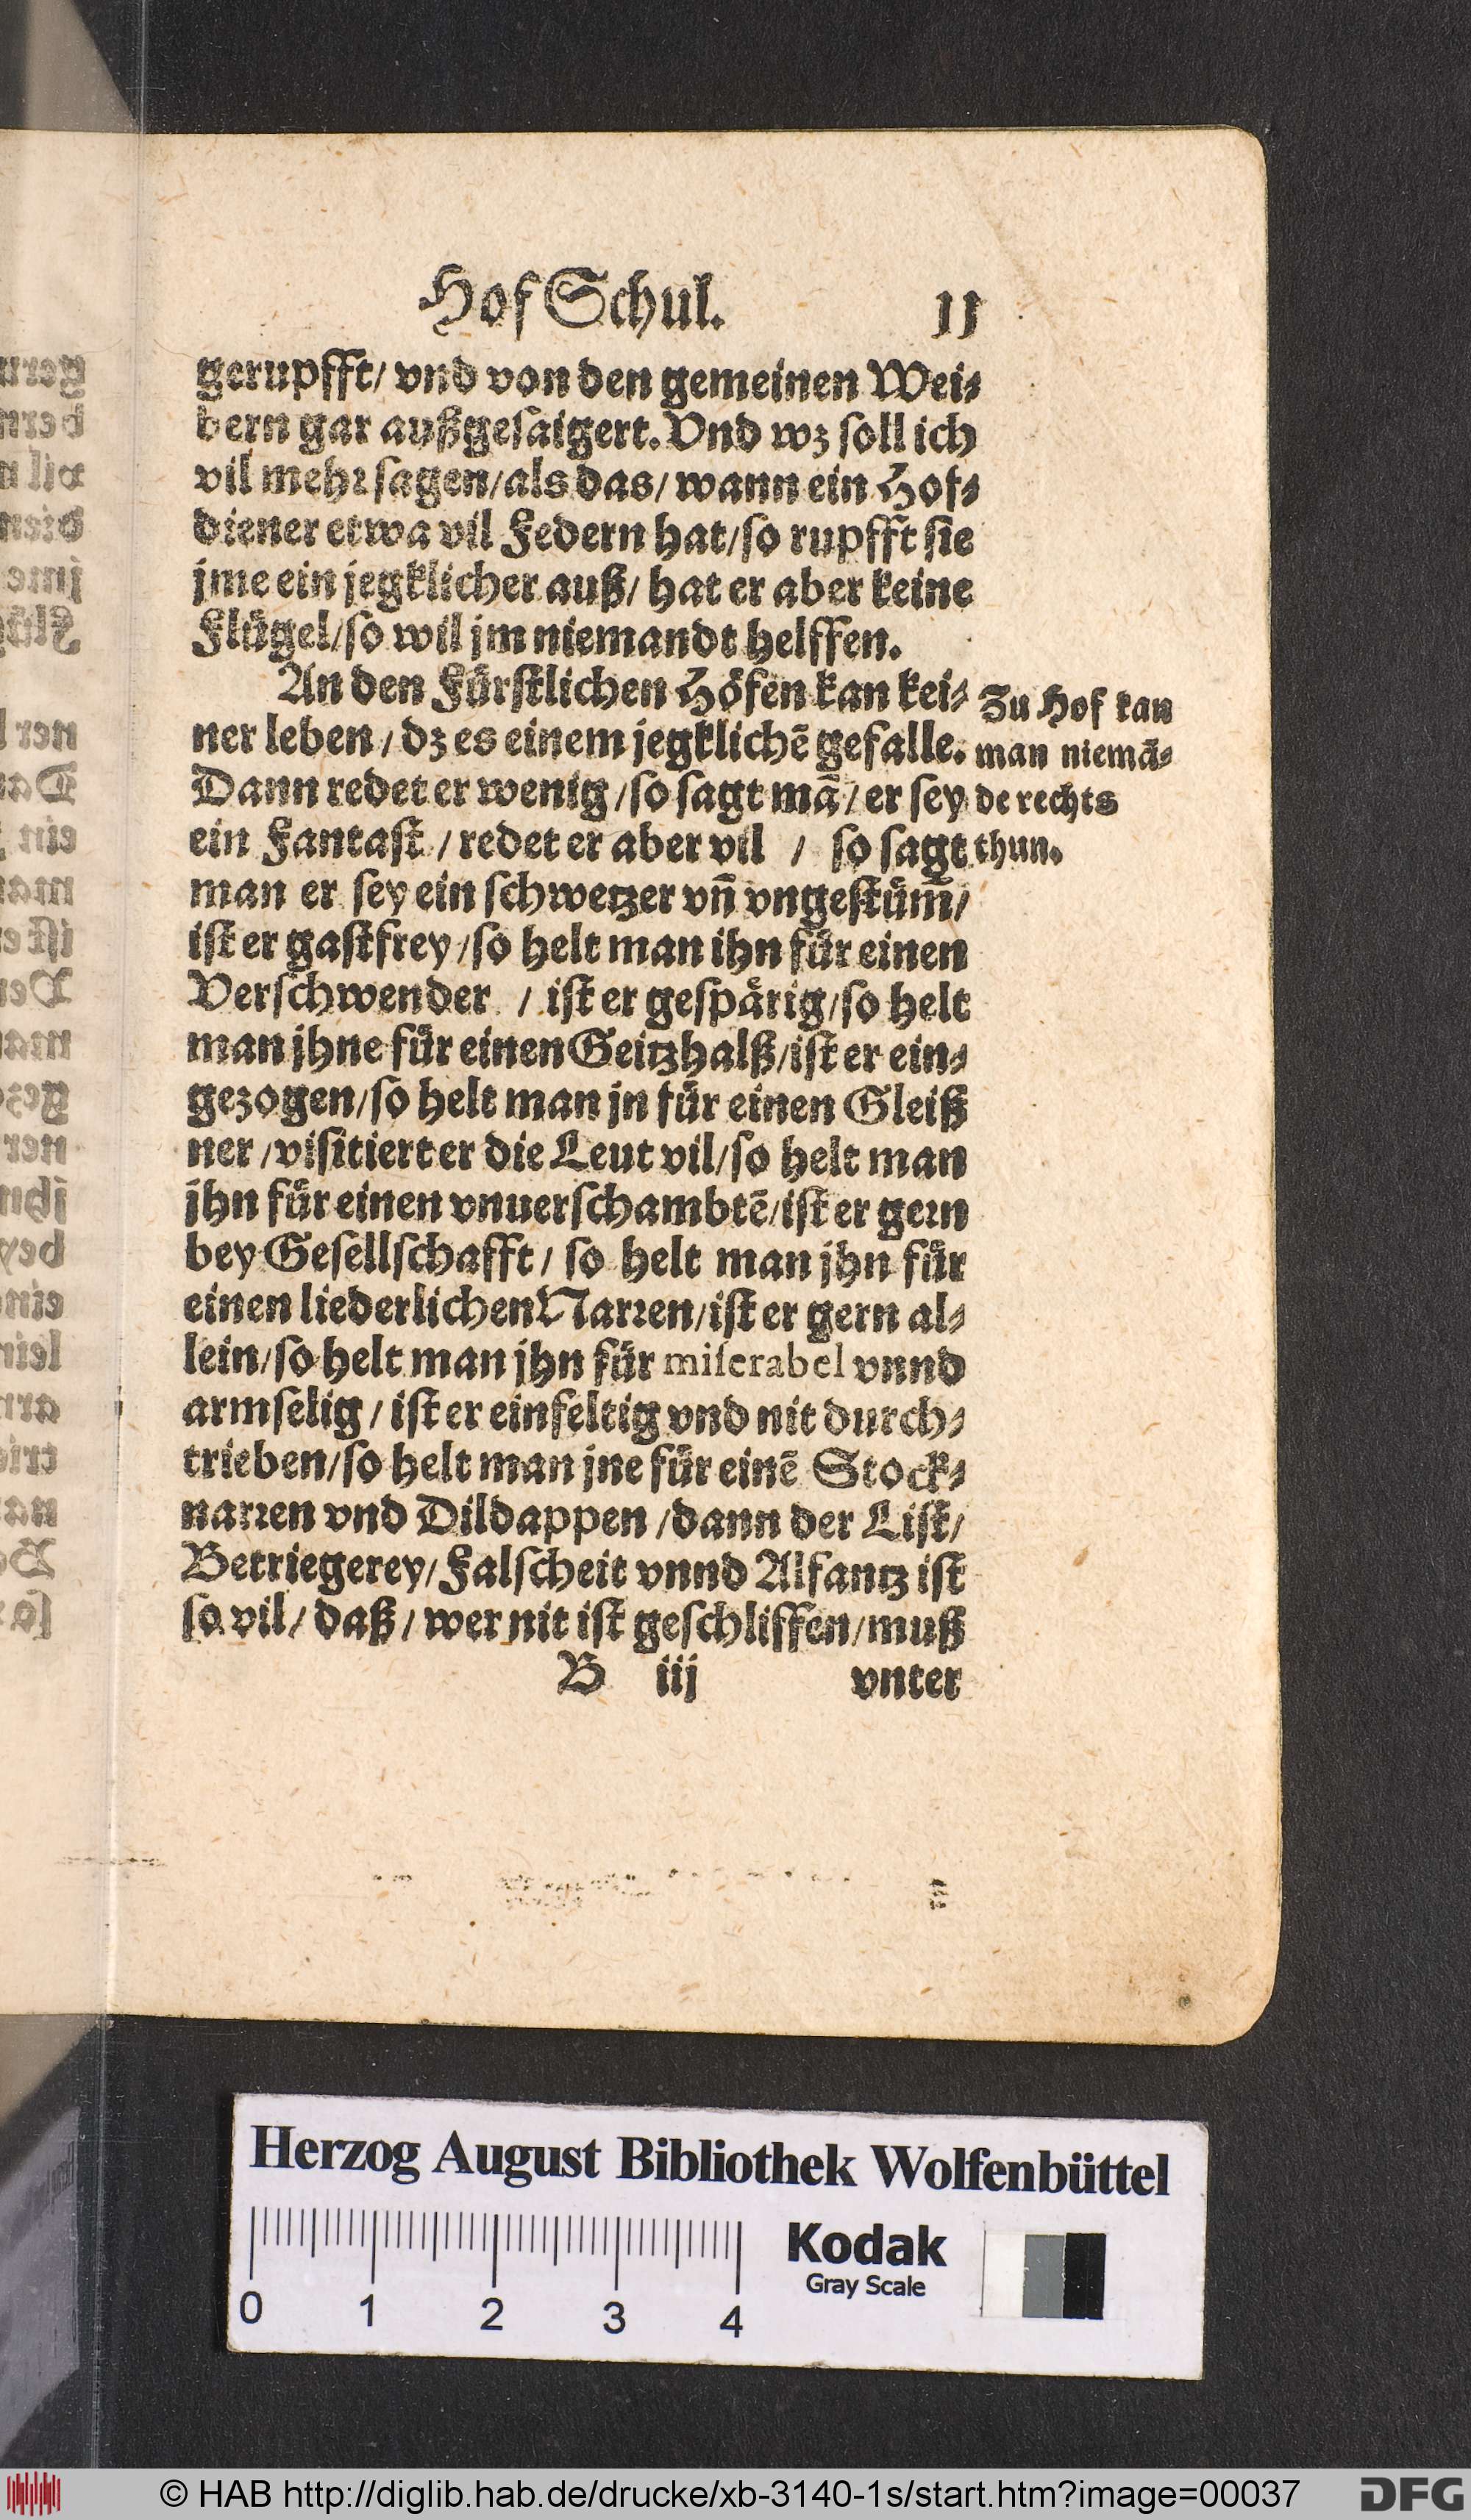 Hof Schul. 11
gerupfft/ vnd von den gemeinen Wei⸗
bern gar außgesaigert. Vnd wz soll ich
vil mehr sagen/als das/ wann ein Hof⸗
diener etwa vil Federn hat/so rupfft sie
jme ein jegklicher auß/ hat er aber keine
Flügel/so wil jm niemandt helffen.
An den Fürstlichen Höfen kan kei⸗
ner leben / dz es einem jegklichē gefalle.
Dann redet er wenig /so sagt mā / er sey
ein Fantast / redet er aber vil / so sagt
man er sey ein schwetzer vn̄ vngestüm̄/
ist er gastfrey /so helt man ihn für einen
Verschwender / ist er gespärig/so helt
man jhne für einen Geitzhalß/ist er ein⸗
gezogen/so helt man jn für einen Gleiß
ner /visitiert er die Leut vil/so helt man
jhn für einen vnuerschambtē/ist er gern
bey Gesellschafft / so helt man jhn für
einen liederlichen Narren/ist er gern al⸗
lein/so helt man jhn für miserabel vnnd
armselig / ist er einfeltig vnd nit durch⸗
trieben/so helt man jne für einē Stock⸗
narren vnd Dildappen /dann der List/
Betriegerey/Falscheit vnnd Alfantz ist
so vil/ daß / wer nit ist geschliffen/muß
B iij vnter
Zu Hof kan
man niemā⸗
de rechts
thun.
Herzog August Bibliothek Wolfenbüttel
0 1 2 3 4
Kodak
Gray Scale
© HAB http://diglib.hab.de/drucke/xb-3140-1s/start.htm?image=00037
DFG